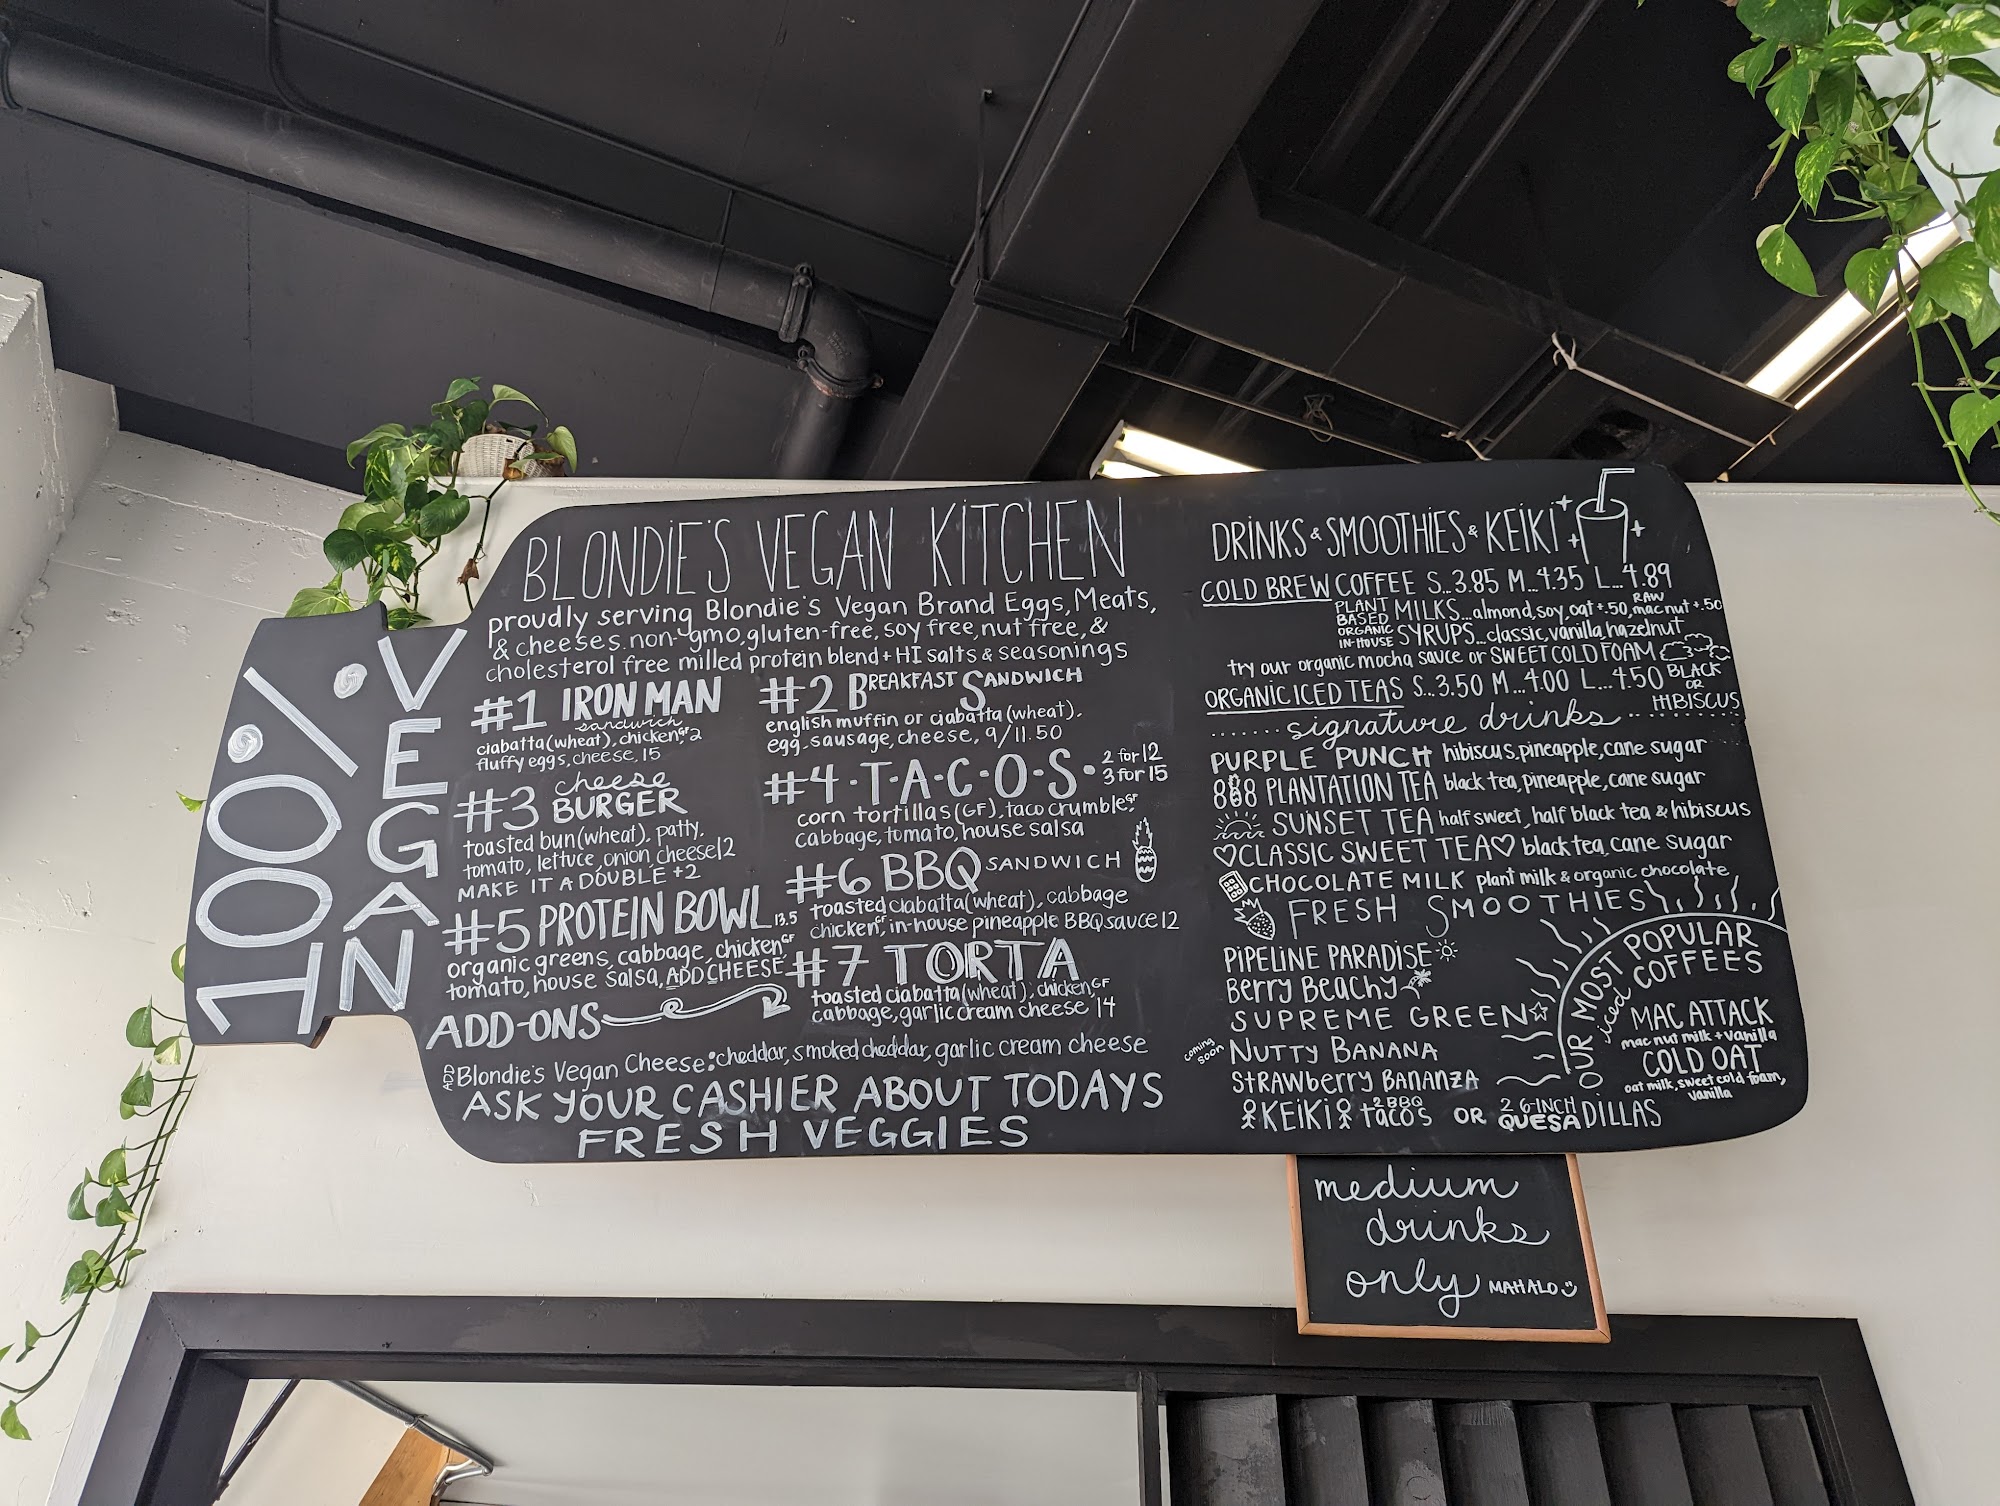 100% VEGAN
BLONDIE'S VEGAN KITCHEN
proudly serving Blondie's Vegan Brand Eggs, Meats,
& cheeses. non-gmo, gluten-free, soy free, nut free, &
cholesterol free milled protein blend + HI salts & seasonings
#1 IRON MAN
sandwich
ciabatta (wheat), chicken,GF 2
fluffy eggs, cheese, 15
#2 BREAKFAST SANDWICH
english muffin or ciabatta (wheat).
egg, sausage, cheese, 9/11.50
#3 cheese BURGER
toasted bun (wheat), patty,
tomato, lettuce, onion cheese 12
MAKE IT A DOUBLE +2
#4 T-A-C-O-S • 2 for 12
3 for 15
corn tortillas (GF), taco crumble,GF
cabbage, tomato, house salsa
#5 PROTEIN BOWL 13.5
organic greens, cabbage, chickenGF
tomato, house salsa, ADD CHEESE
#6 BBQ SANDWICH
toasted ciabatta (wheat), cabbage
chicken,GF in-house pineapple BBQ sauce 12
#7 TORTA
toasted ciabatta (wheat), chicken,GF
cabbage, garlic cream cheese 14
ADD-ONS
ADD Blondie's Vegan Cheese: cheddar, smoked cheddar, garlic cream cheese
ASK YOUR CASHIER ABOUT TODAYS
FRESH VEGGIES
DRINKS & SMOOTHIES & KEIKI
COLD BREW COFFEE S...3.85 M...4.35 L...4.89
PLANT BASED MILKS...almond, soy, oat +.50, RAW mac nut +.50
ORGANIC IN-HOUSE SYRUPS...classic, vanilla, hazelnut
try our organic mocha sauce or SWEET COLD FOAM
ORGANIC ICED TEAS S...3.50 M...4.00 L...4.50 BLACK
OR
HIBISCUS
signature drinks
PURPLE PUNCH hibiscus, pineapple, cane sugar
808 PLANTATION TEA black tea, pineapple, cane sugar
SUNSET TEA half sweet, half black tea & hibiscus
CLASSIC SWEET TEA black tea, cane sugar
CHOCOLATE MILK plant milk & organic chocolate
FRESH SMOOTHIES
PIPELINE PARADISE
Berry Beachy
SUPREME GREEN
coming soon NUTTY BANANA
STRAWberry BANANZA
KEIKI 2 BBQ tacos OR 2 6-INCH QUESADILLAS
OUR MOST POPULAR
iced COFFEES
MAC ATTACK
mac nut milk + vanilla
COLD OAT
oat milk, sweet cold foam,
vanilla
medium
drinks
only MAHALO